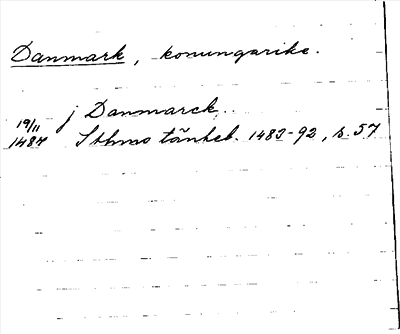 Danmark, konungarike.
19/11 j Danmarck.
1487 Sthms tänkeb. 1483-92, s. 57